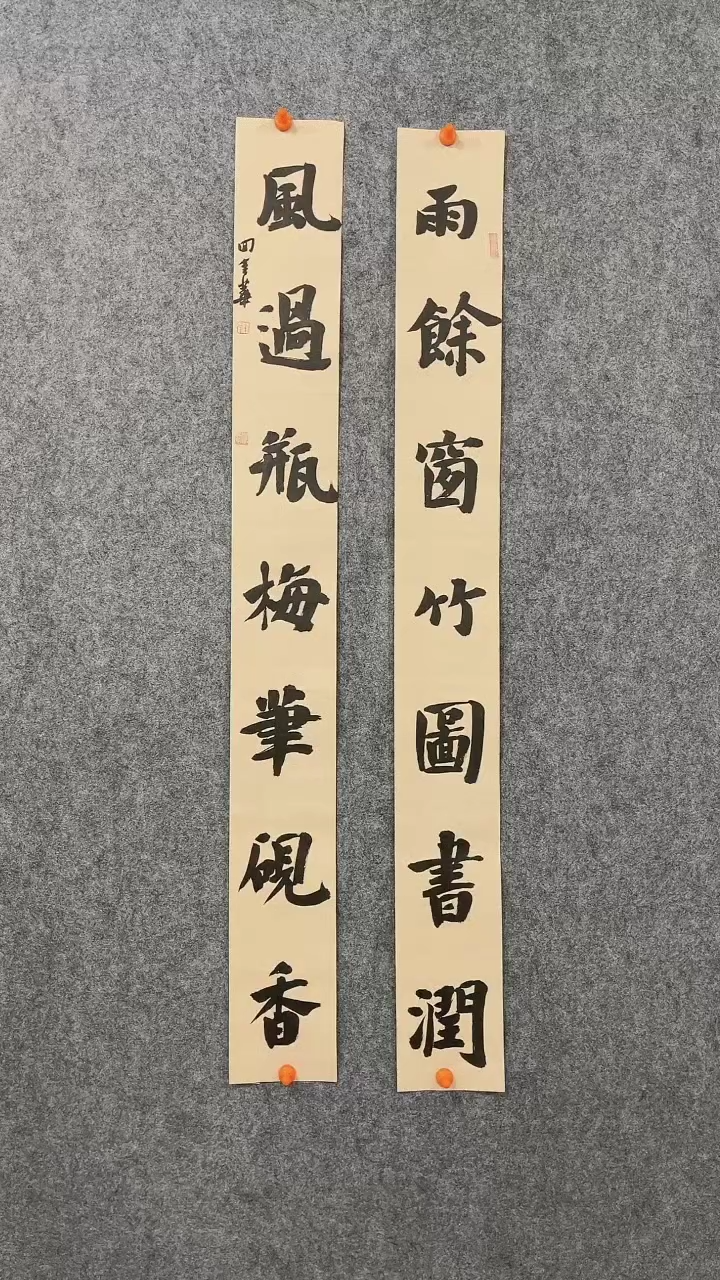 雨餘窗竹圖書潤
風過瓶梅筆硯香